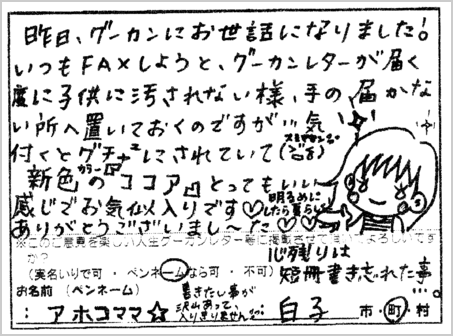 昨日、グーカンにお世話になりました!
いつもFAXしようと、グーカンレターが届く
度に子供に汚されない様、手の届かな
い所へ置いておくのですが…気
付くとグチャ²にされていて
新色の『ココア』とってもいい
カラー
感じでお気似入りです♡♡
明るめに
したら暮らし
ありがとうございましーた♡
※このご意見を楽しい人生グーカンレター等に掲載させて頂いてよろしいです
か?
(実名いりで可 ・ ペンネームなら可 ・ 不可)
心残りは
短冊書き忘れた事…。
お名前 (ペンネーム)
: アホコママ☆
書きたい事が
沢山あって、
入りきりません
白子
市・町・村